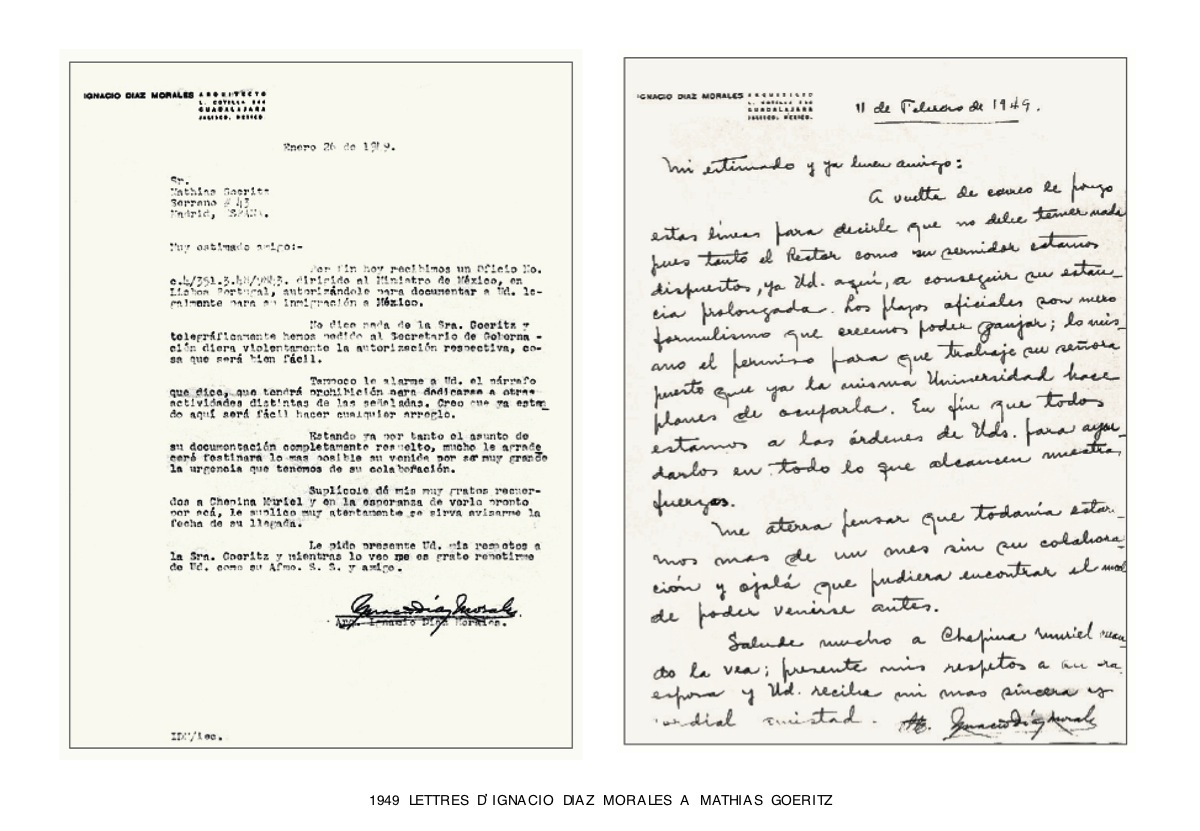 IGNACIO DIAZ MORALES ARQUITECTO
L. COTILLA
GUADALAJARA
JALISCO, MEXICO
Enero 26 de 1949.
Sr.
Mathias Goeritz
Serrano # 43
Madrid, ESPAÑA.
Muy estimado amigo:-
Por fin hoy recibimos un Oficio No.
dirigido al Ministro de México, en
Lisboa Portugal, autorizándolo para documentar a Ud. le-
galmente para su inmigración a México.
No dice nada de la Sra. Goeritz y
telegráficamente hemos pedido al Secretario de Goberna -
ción diera violentamente la autorización respectiva, co-
sa que será bien fácil.
Tampoco le alarme a Ud. el párrafo
que dice, que tendrá prohibición para dedicarse a otras
actividades distintas de las señaladas. Creo que ya estan
do aquí será fácil hacer cualquier arreglo.
Estando ya por tanto el asunto de
su documentación completamente resuelto, mucho le agrade
ceré festinara lo mas posible su venida por ser muy grande
la urgencia que tenemos de su colaboración.
Suplícole dé mis muy gratos recuer-
dos a Chepina Muriel y en la esperanza de verlo pronto
por acá, le suplico muy atentamente se sirva avisarme la
fecha de su llegada.
Le pido presente Ud. mis respetos a
la Sra. Goeritz y mientras lo veo me es grato repetirme
de Ud. como su Afmo. S. S. y amigo.
Ignacio Díaz Morales
Arq. Ignacio Díaz Morales.
IDM/iec.
IGNACIO DIAZ MORALES ARQUITECTO
GUADALAJARA
JALISCO, MEXICO
11 de Febrero de 1949.
Mi estimado y ya buen amigo:
A vuelta de correo le pongo
estas líneas para decirle que no debe temer nada
pues tanto el Rector como su servidor estamos
dispuestos, ya Ud. aquí, a conseguir su estan-
cia prolongada. Los plazos oficiales son mero
formulismo que creemos poder zanjar; lo mis-
mo el permiso para que trabaje su señora
puesto que ya la misma Universidad hace
planes de ocuparla. En fin que todos
estamos a las órdenes de Uds. para ayu-
darlos en todo lo que alcancen nuestras
fuerzas.
Me aterra pensar que todavía esta-
mos mas de un mes sin su colabora-
ción y ojalá que pudiera encontrar el modo
de poder venirse antes.
Salude mucho a Chepina Muriel cuan-
do la vea; presente mis respetos a su
esposa y Ud. reciba mi mas sincera y
cordial amistad. Ignacio Díaz Morales
1949 LETTRES D'IGNACIO DIAZ MORALES A MATHIAS GOERITZ